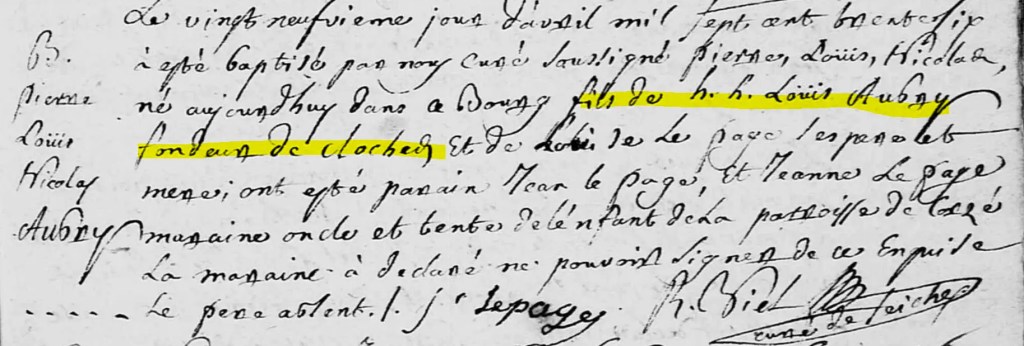 Le vingt neufvieme jour d'avril mil sept cent trente six
B. à esté baptisé par nous curé soussigné pierre, Loüis, Nicolas,
pierre né aujourdhuy dans ce Bourg fils de h. h. Loüis Aubry
Loüis fondeur de cloches Et de Loüise Le page ses pere et
Nicolas mere; ont esté parain Jean le page, Et Jeanne Le page
Aubry maraine oncle et tente de l'énfant de La parroisse de
La maraine à declaré ne pouvoir signer de ce Enquise
Le pere absent. /. Lepage R. Viel
curé de seiches